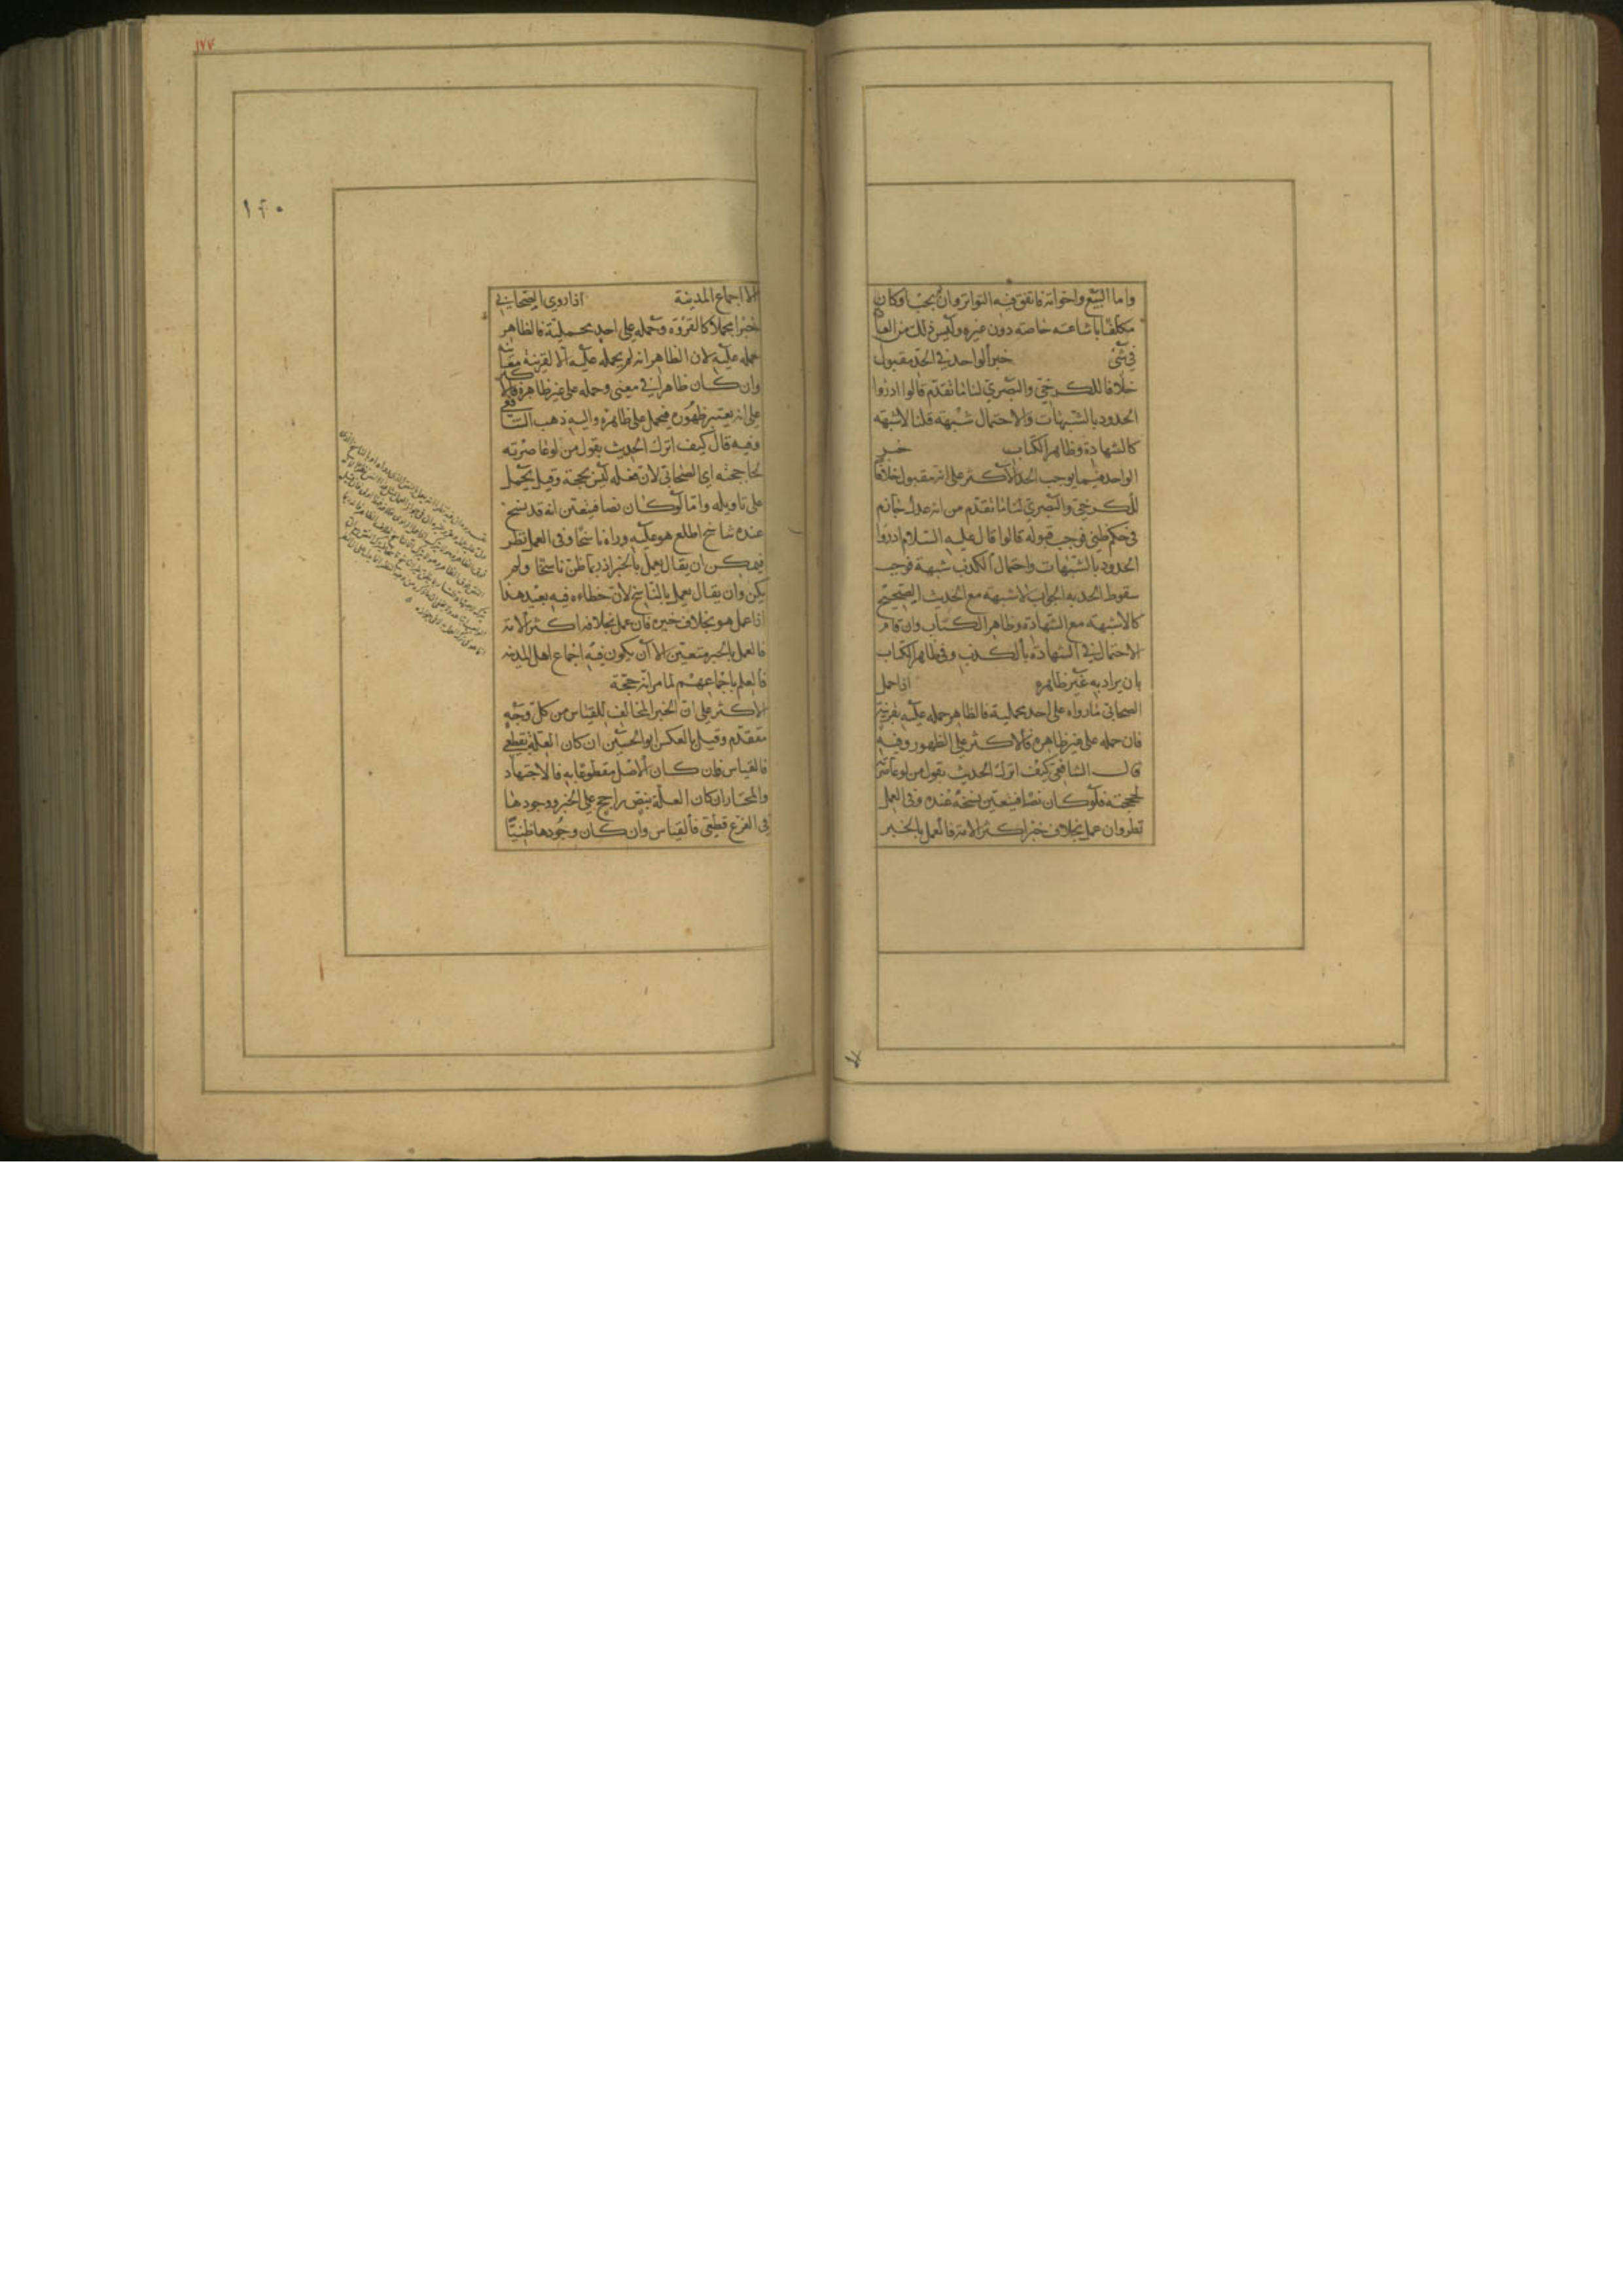 واما البيع واخواته فاتفق فيه التواتر وان لم يجب او كان
مكلفا باشاعته خاصة دون غيره وليس ذلك من العبا
في شئ خبر الواحد في الحد مقبول
خلافا للكرخي والبصري لنا ما تقدم قالوا ادرؤا
الحدود بالشبهات والاحتمال شبهة قلنا لا شبهة
كالشهادة وظاهر الكتاب خبر
الواحد فيما يوجب الحد الاكثر على انه مقبول خلافا
للكرخي والبصري لنا ما تقدم من انه عدل جازم
في حكم ظني فوجب قبوله قالوا قال عليه السلام ادرؤا
الحدود بالشبهات واحتمال الكذب شبهة فوجب
سقوط الحد به الجواب لا شبهة مع الحديث الصحيح
كما لا شبهة مع الشهادة وظاهر الكتاب وان قام
الاحتمال في الشهادة بالكذب وفي ظاهر الكتاب
بان يراد به غير ظاهره اذا حمل
الصحابي ما رواه على احد محمليه فالظاهر حمله عليه بقرينة
فان حمله على غير ظاهره فالاكثر على الظهور وفيه
قال الشافعي كيف اترك الحديث بقول من لو عاصرته
لحججته فلو كان نصا فيتعين نسخه عنده وفي العمل
نظر وان عمل بخلاف خبر اكثر الامة فالعمل بالخبر
١٧٧
١٢٠
الا اجماع المدينة اذا روى الصحابي
خبرا مجملا كالقروء وحمله على احد محمليه فالظاهر
حمله عليه لان الظاهر انه لم يحمله عليه الا لقرينة معاينة
وان كان ظاهرا في معنى وحمله على غير ظاهره فالاكثر
على انه يعتبر ظهوره فيحمل على ظاهره واليه ذهب الشافعي
وفيه قال كيف اترك الحديث بقول من لو عاصرته
لحاججته اي الصحابي لان فعله ليس بحجة وقيل يحمل
على تاويله واما لو كان نصا فيتعين انه قد نسخ
عنده بناسخ اطلع هو عليه وراه ناسخا وفي العمل نظر
فيمكن ان يقال يعمل بالخبر اذ ربما ظن ناسخا ولم
يكن وان يقال يعمل بالناسخ لان خطاءه فيه بعيد هذا
اذا عمل هو بخلاف خبره فان عمل بخلافه اكثر الامة
فالعمل بالخبر متعين الا ان يكون فيه اجماع اهل المدينة
فالعلم باجماعهم لما مر انه حجة
الاكثر على ان الخبر المخالف للقياس من كل وجه
مقدم وقيل بالعكس ابو الحسين ان كان العلة بقطعي
فالقياس فان كان الاصل مقطوعا به فالاجتهاد
والمختار ان كان العلة بنص راجح على الخبر ووجودها
في الفرع قطعي فالقياس وان كان وجودها ظنيا